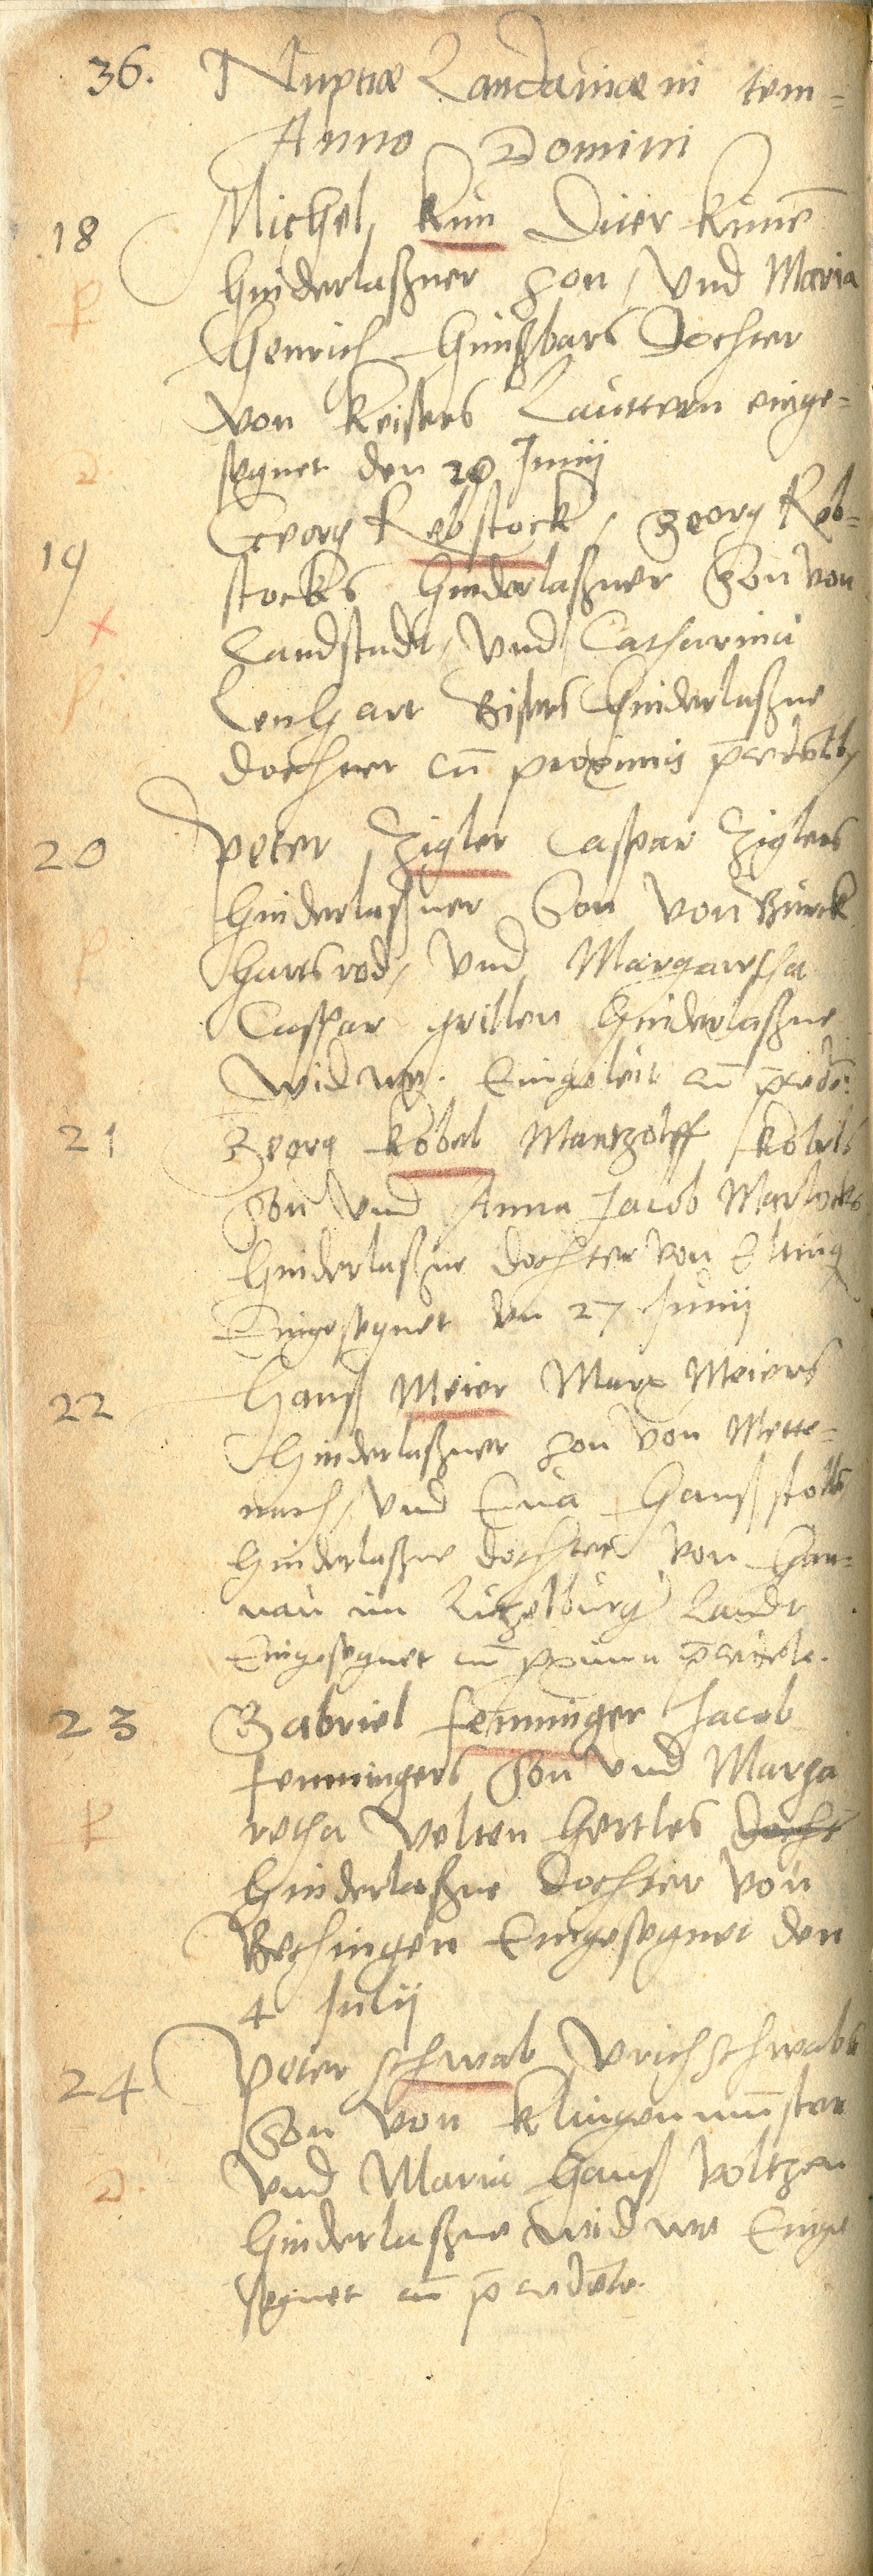 36. Nuptiæ Landauiæ in tem=
Anno Domini
18 Michel Kun Diter Kunē
hinderlaßner son, Vnd Maria
Henrich Hunßbars Dochter
von Keisers Lauttern einge=
segnet den 20 Junij
19 Georg Rebstock, Georg Reb=
stocks hinderlaßner Son von
Landstudt, Vnd Catharina
Lenhart hinderlaßne
dochter cū proximis
20 Peter Zigler Caspar Ziglers
hinderlaßner Son von Burck
hartsrod, Vnd Margaretha
Caspar grillen hinderlaßne
Widwe. Eingeleit cū
21 Georg Kobel Mantzolff Kobels
Son Vnd Anna Jacob
hinderlaßne dochter von
Eingesegnet den 27 Junij
22 Hanß Meier Marx Meiers
hinderlaßner son von Mette=
nach, Vnd Eua Hanß stolls
hinderlaßne dochter von Han=
nau im Lützelburg Landt
Eingesegnet cū
23 Gabriel Fenninger Jacob
Fenningers Son Vnd Marga
retha Velten Hertles docht
hinderlaßne dochter von
Bechingen Eingesegnet den
4 Julij
24 Peter Schwab Vrich Schwabs
Son von Klingenmūster
Vnd Maria Hanß Voltzen
hinderlaßne Widwe Einge
segnet cū